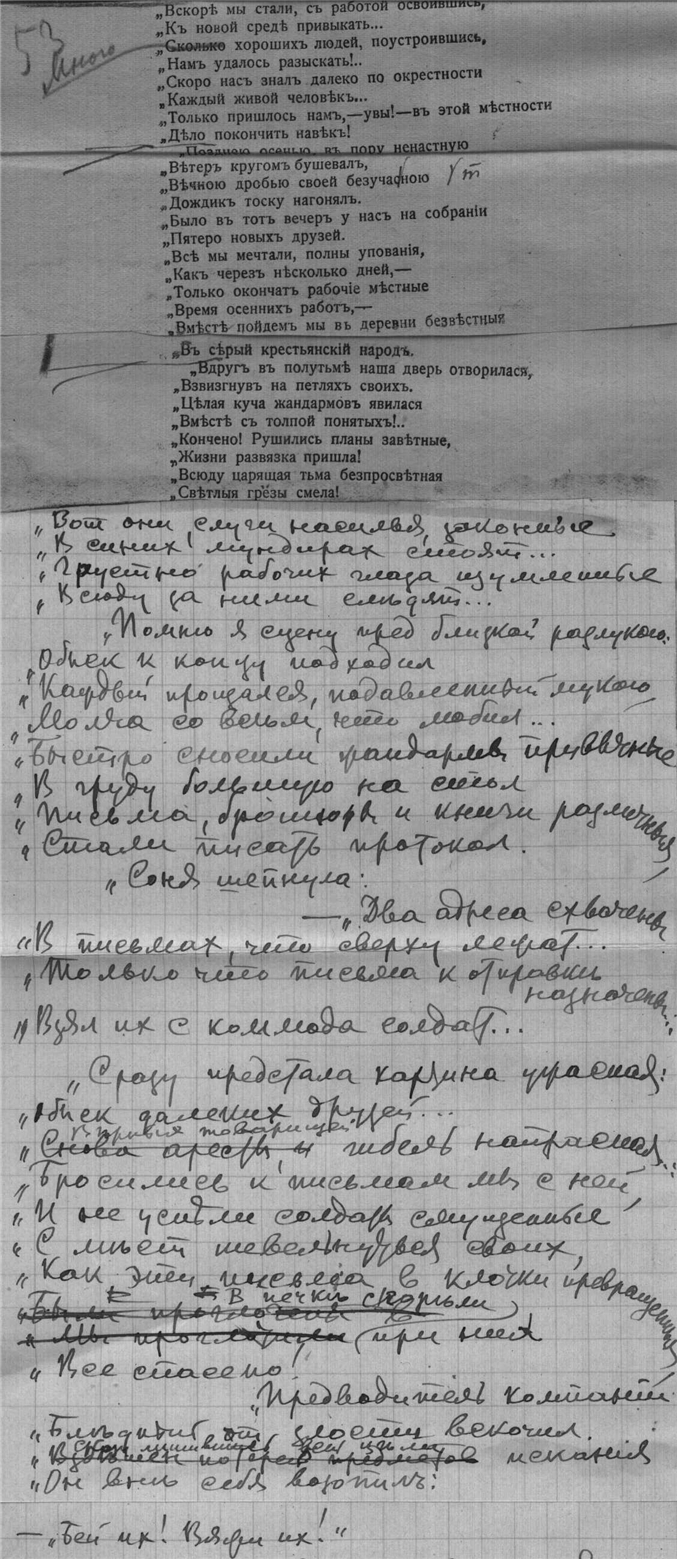 „Вскорѣ мы стали, съ работой освоившись,
„Къ новой средѣ привыкать...
53
Много
„Сколько хорошихъ людей, поустроившись,
„Намъ удалось разыскать!..
„Скоро насъ зналъ далеко по окрестности
„Каждый живой человѣкъ...
„Только пришлось намъ,—увы!—въ этой мѣстности
„Дѣло покончить навѣкъ!
„Позднею осенью, въ пору ненастную
„Вѣтеръ кругомъ бушевалъ,
„Вѣчною дробью своей безучастною
„Дождикъ тоску нагонялъ.
„Было въ тотъ вечеръ у насъ на собраніи
„Пятеро новыхъ друзей.
„Всѣ мы мечтали, полны упованія,
„Какъ черезъ нѣсколько дней,—
„Только окончатъ рабочіе мѣстные
„Время осеннихъ работъ,—
„Вмѣстѣ пойдемъ мы въ деревни безвѣстныя
„Въ сѣрый крестьянскій народъ.
„Вдругъ въ полутьмѣ наша дверь отворилася,
„Взвизгнувъ на петляхъ своихъ.
„Цѣлая куча жандармовъ явилася
„Вмѣстѣ съ толпой понятыхъ!..
„Кончено! Рушились планы завѣтные,
„Жизни развязка пришла!
„Всюду царящая тьма безпросвѣтная
„Свѣтлыя грёзы смела!
„Вот они, слуги насилья законные
„В синих мундирах стоят...
„Грустно рабочих глаза изумленные
„Всюду за ними следят...
„Помню я сцену пред близкой разлукою:
„Обыск к концу подходил
„Каждый прощался, подавленный мукою
„Молча со всем, что любил...
„Быстро сносили жандармы привычные
„В груду большую на стол
„Письма, брошюры и книги различныя,
„Стали писать протокол.
„Соня шепнула:
—„Два адреса схвачены
„В письмах, что сверху лежат...
„Только что письма к отправке назначены...
„Взял их с коммода солдат...
„Сразу предстала картина ужасная:
„Обыск далеких друзей...
товарищей
„Снова аресты и гибель напрасная...
„Бросились к письмам мы с ней,
„И не успели солдаты смущенные
„С мест шевельнуться своих,
„Как эти письма в клочки превращенныя,
В печке сгорели
при них
„Все спасено!
„Предводитель компании
„Бледный от злости вскочил.
искания
„Он вне себя возопилъ:
—„Бей их! Вяжи их!“